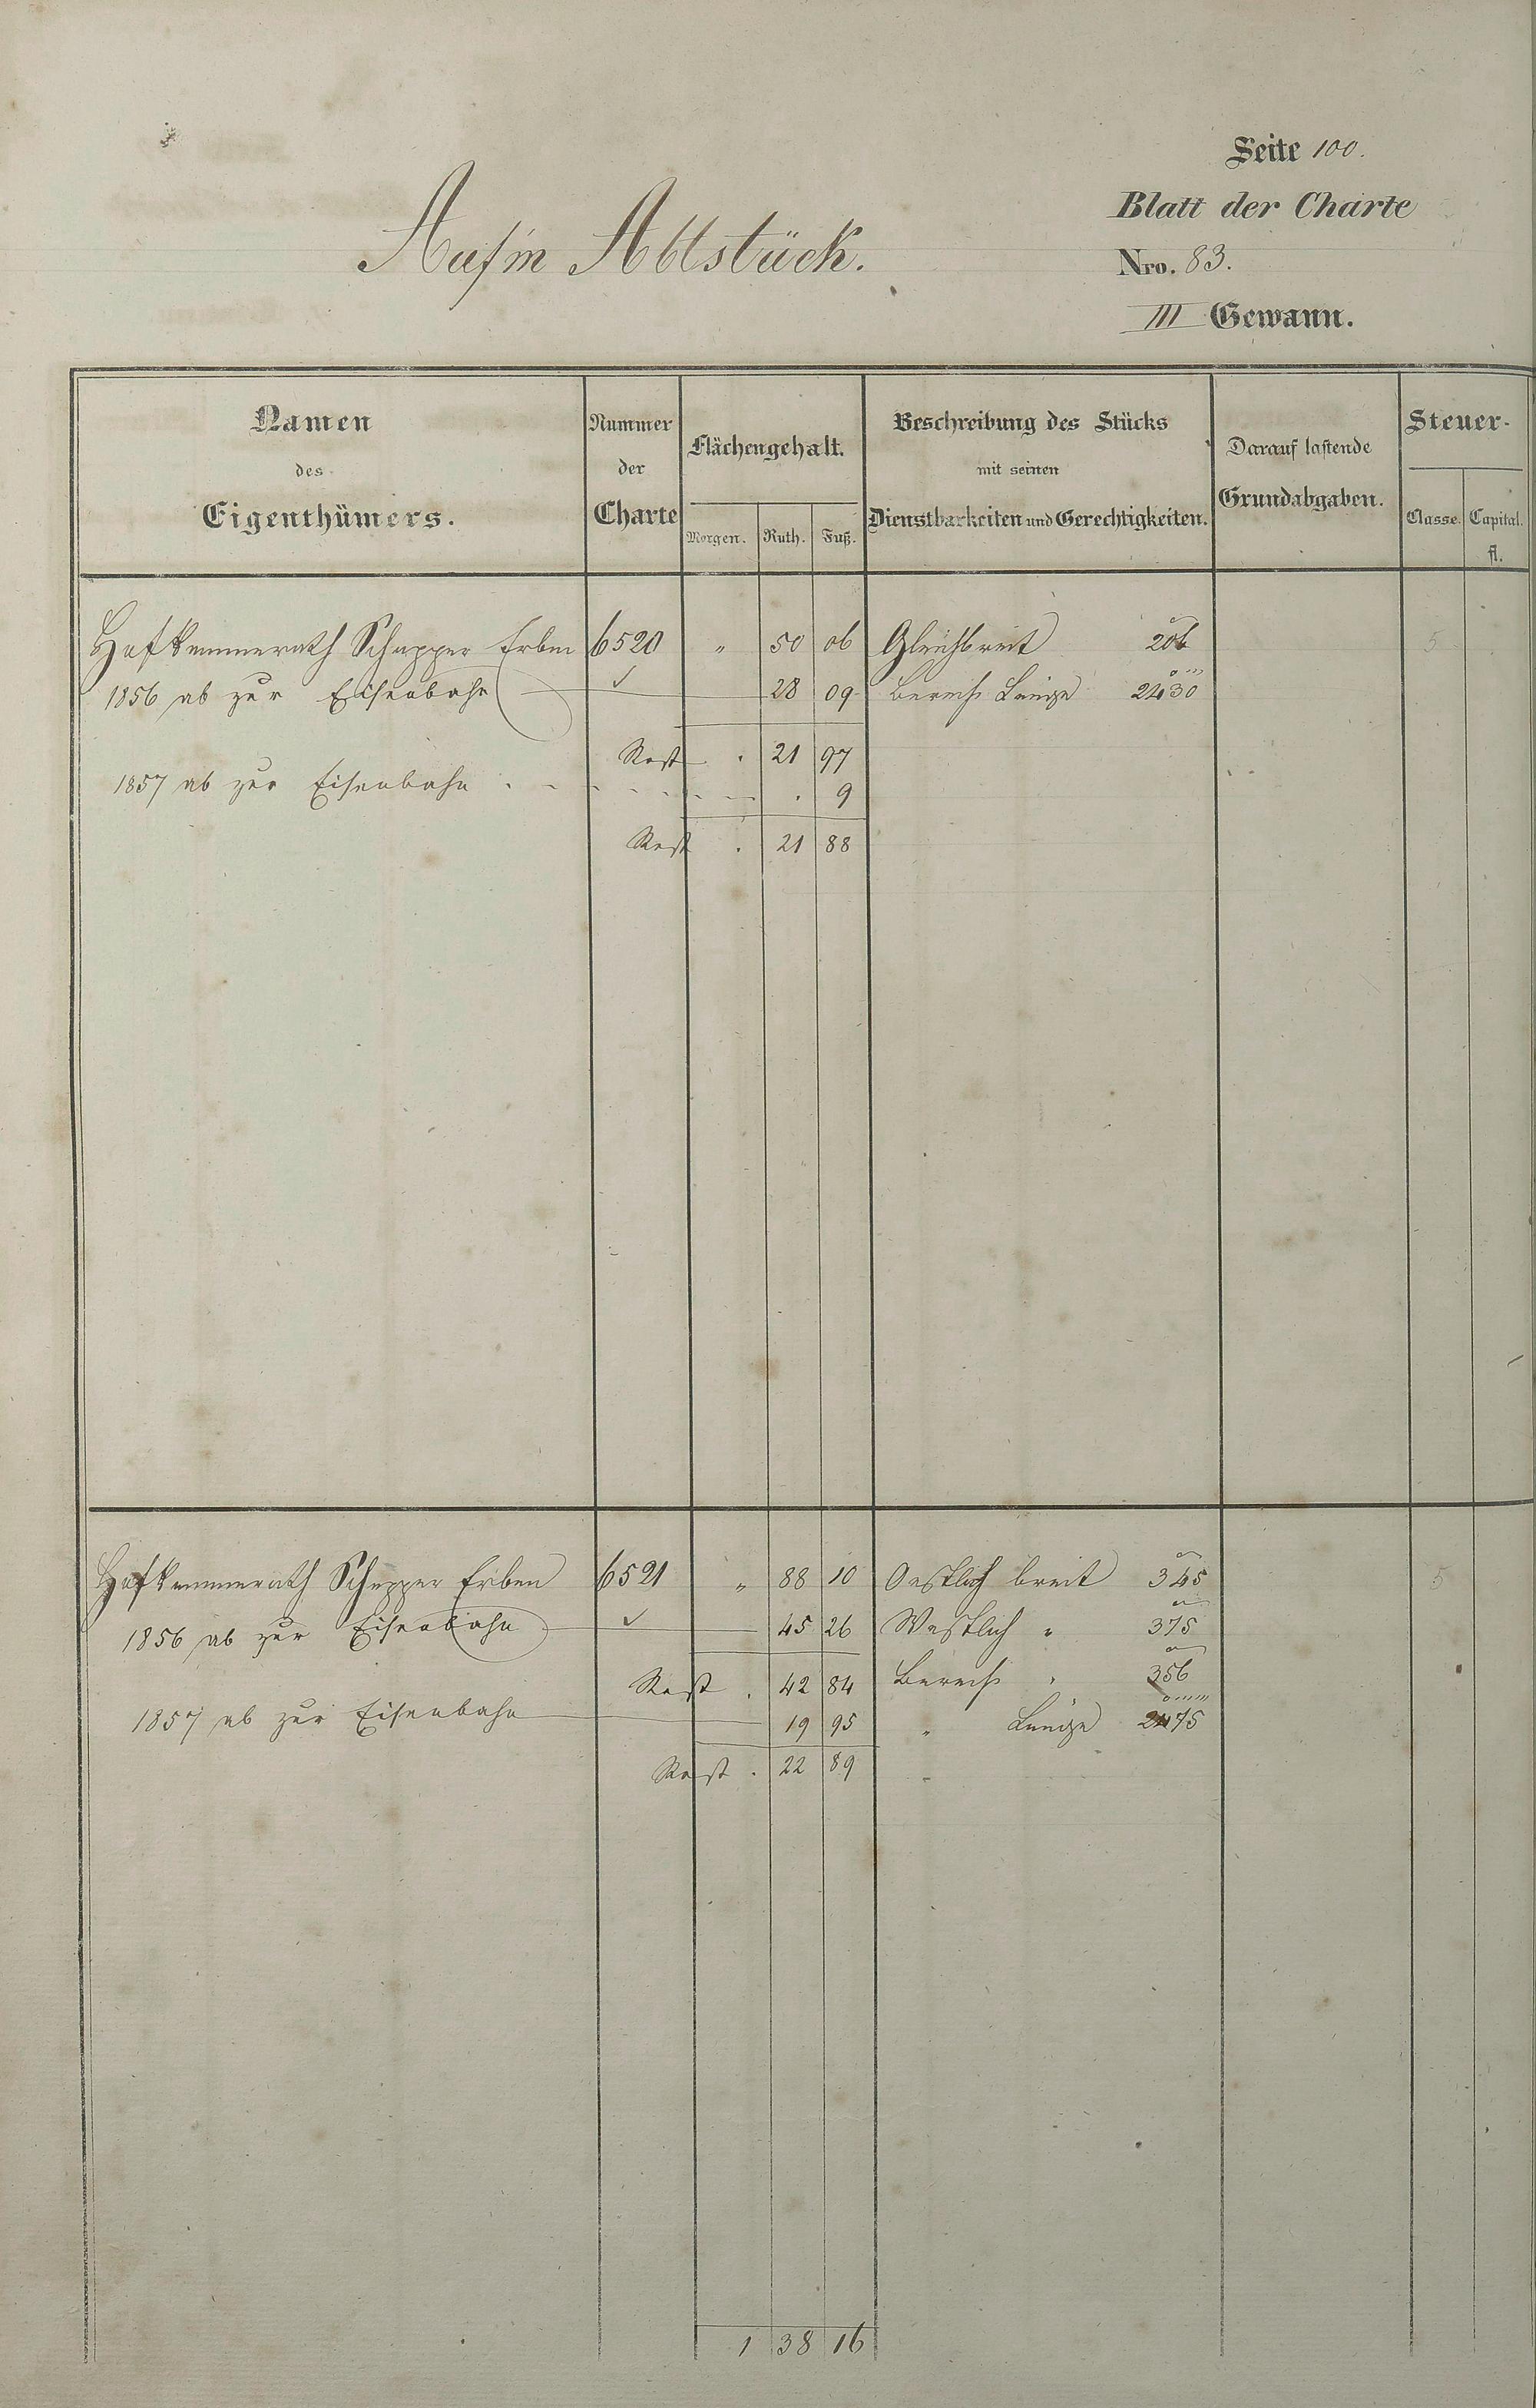 Seite 100.
Blatt der Charte
Auf'm Abtstück.
Nro. 83.
III Gewann.
Namen des Eigenthümers.
Nummer der Charte
Flächengehalt.
Morgen. Ruth. Fuß.
Beschreibung des Stücks mit seinen Dienstbarkeiten und Gerechtigkeiten.
Darauf lastende Grundabgaben.
Steuer-
Classe. Capital. fl.
Hofkammerrath Schapper Erben 6520 " 50 06 Gleichbreit 206 5
1856 ab zur Eisenbahn ✓ 28 09 Länge 2430
Rest . 21 97
1857 ab zur Eisenbahn . 9
Rest . 21 88
Hofkammerrath Schapper Erben 6521 " 88 10 Oestlich breit 345 5
1856 ab zur Eisenbahn ✓ 45 26 Westlich " 375
Rest . 42 84 " 356
1857 ab zur Eisenbahn 19 95 " Länge 2475
Rest . 22 89
1 38 16